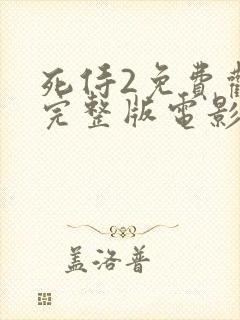 死侍2免費
完整版電影
盖洛普